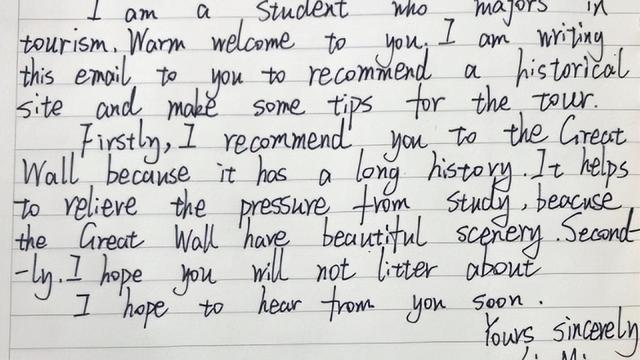 I am a student who majors in
tourism. Warm welcome to you. I am writing
this email to you to recommend a historical
site and make some tips for the tour.
Firstly, I recommend you to the Great
Wall because it has a long history. It helps
to relieve the pressure from study, beacuse
the Great Wall have beautiful scenery. Second-
-ly. I hope you will not litter about
I hope to hear from you soon.
Yours sincerely